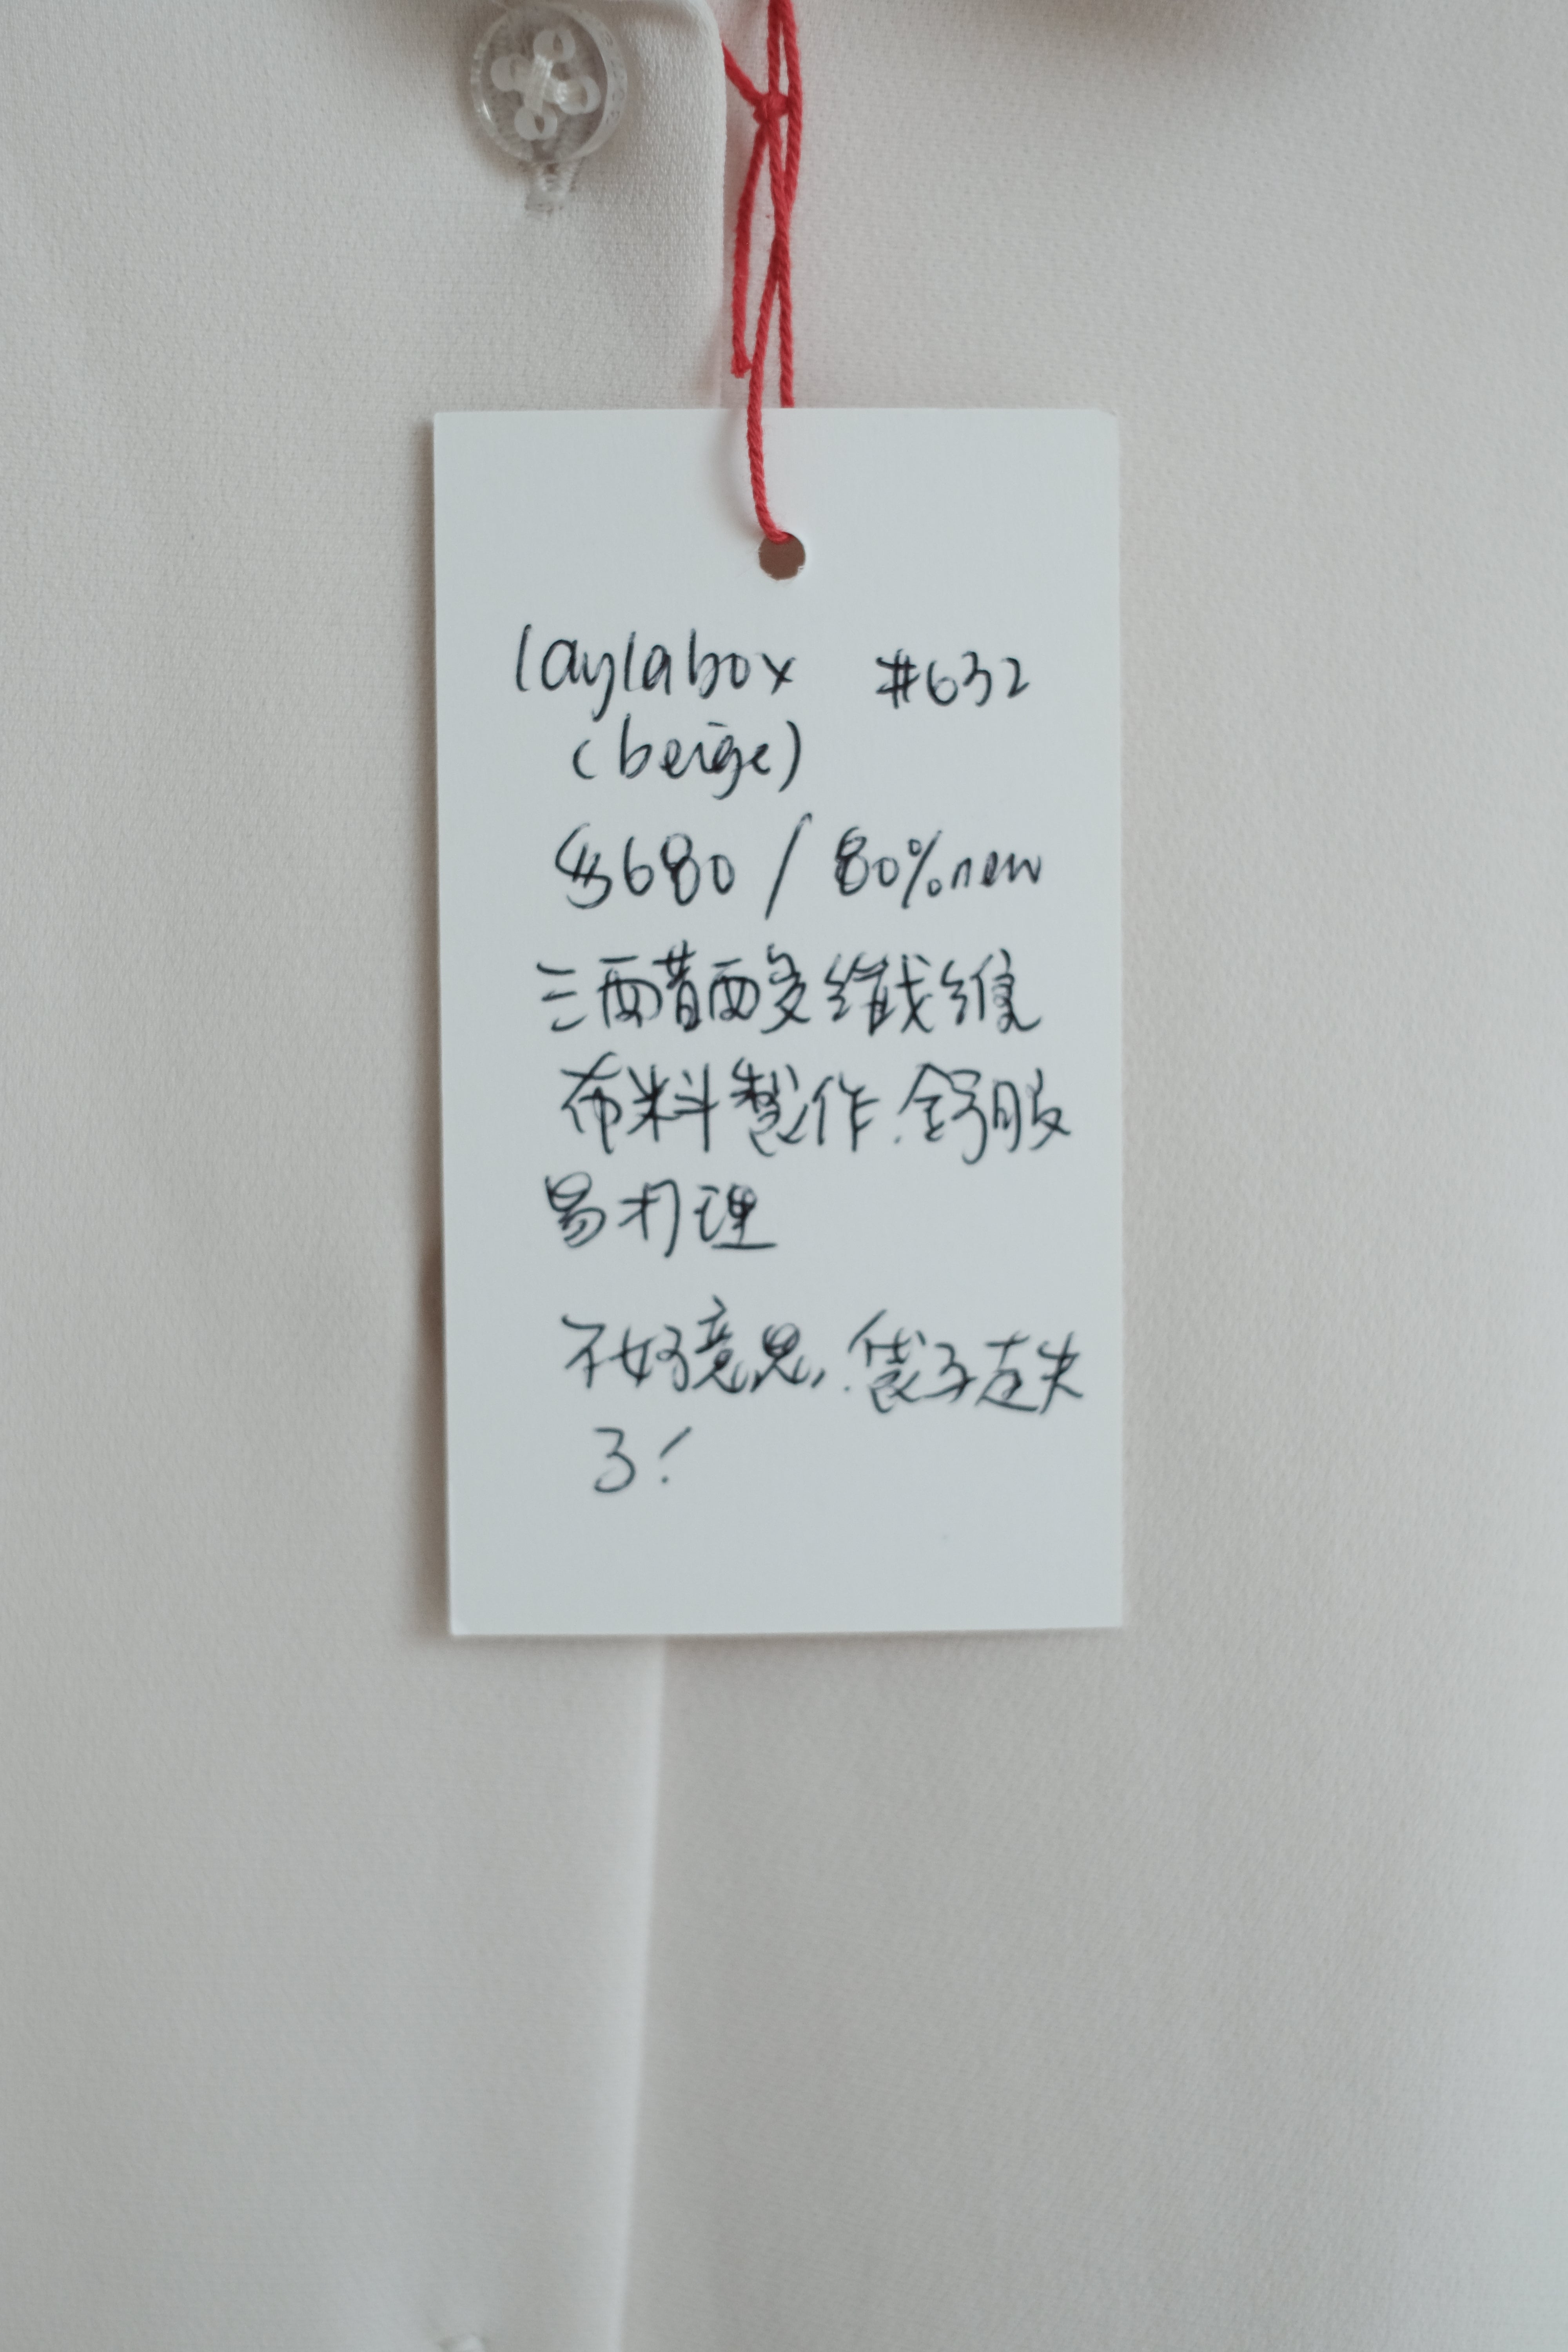 laylabox #632
(beige)
$680 / 80%new
三醋酸纖維
布料製作.舒服
易打理
不好意思,.袋子走失
了!